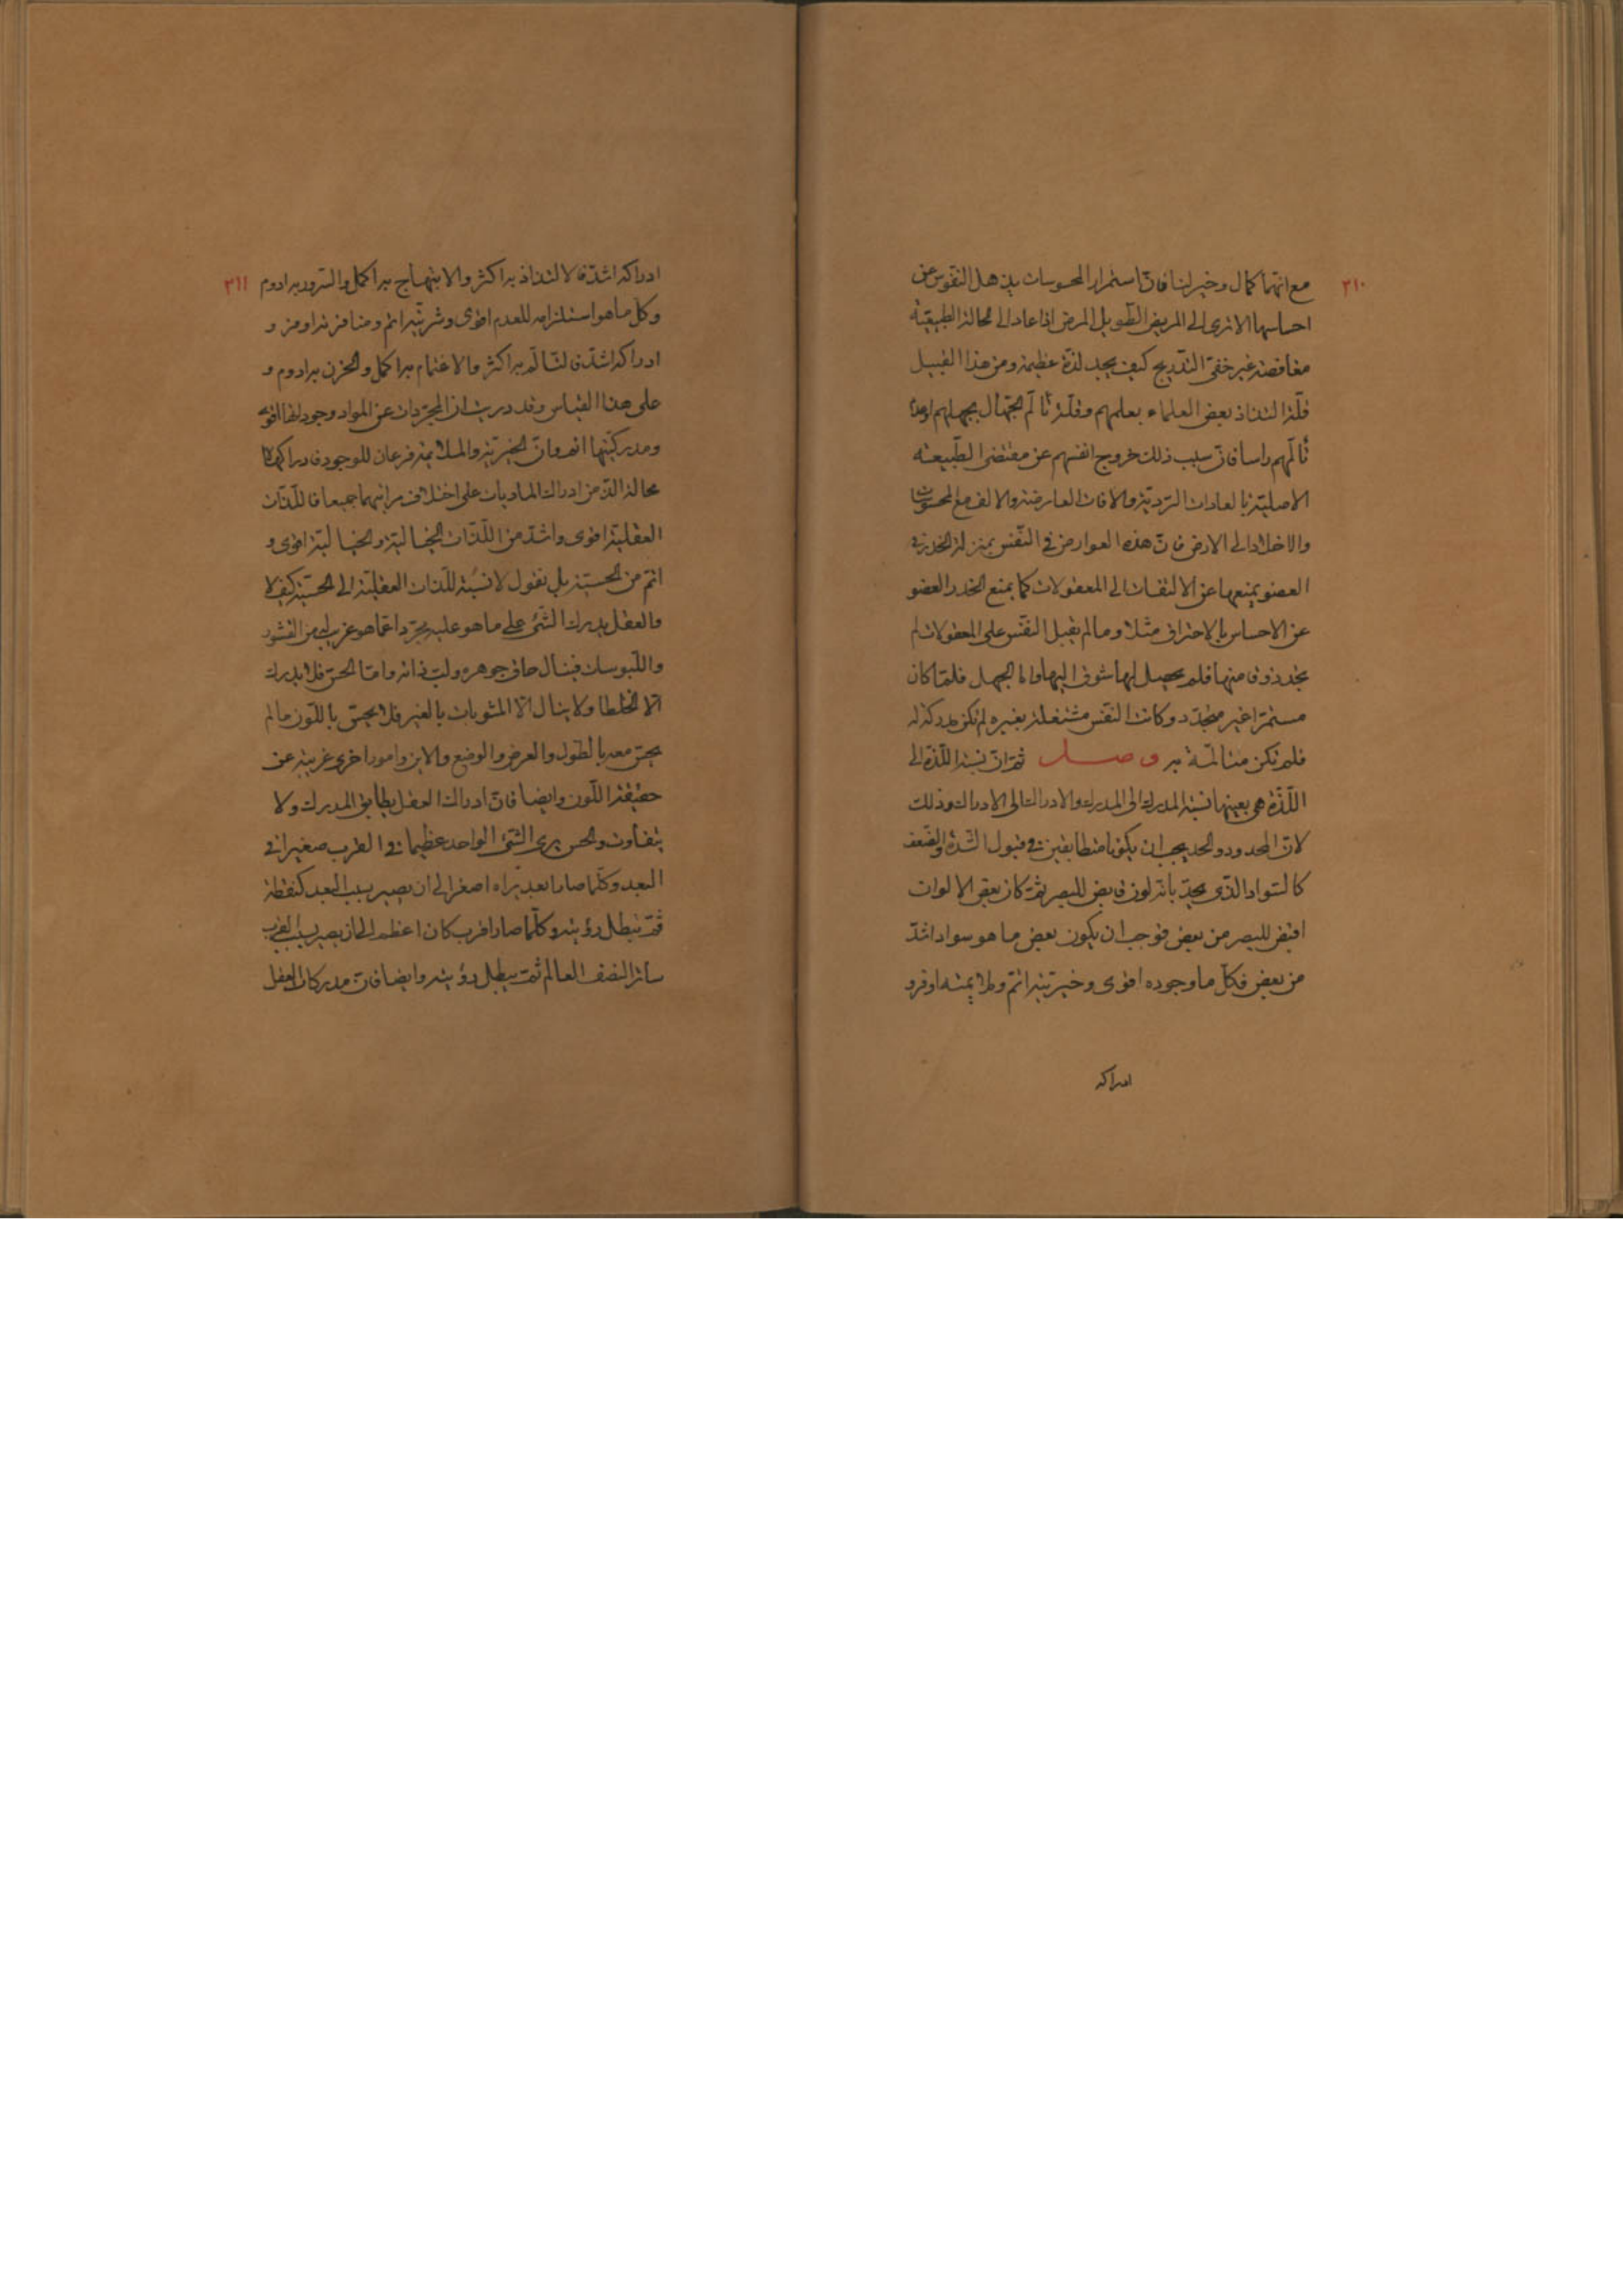 ٣١٠
مع انها كمال وخير لنا فان استمرار المحسوسات يذهل النفوس عن
احساسها الا ترى الى المريض الطويل المرض اذا عاد الى الحالة الطبيعية
مغافصة غير خفى التدريج كيف يجد لذة عظيمة ومن هذا القبيل
قلة التذاذ بعض العلماء بعلمهم وقلة تألم الجهال بجهلهم او عدم
تألمهم راسا فان سبب ذلك خروج انفسهم عن مقتضى الطبيعة
الاصلية بالعادات الردية والافات العارضة والالف مع المحسوسات
والاخلاد الى الارض فان هذه العوارض فى النفس بمنزلة الخدر فى
العضو يمنعها عن الالتفات الى المعقولات كما يمنع الخدر العضو
عن الاحساس بالاحتراق مثلا وما لم يقبل النفس على المعقولات لم
يجد ذوقا منها فلم يحصل لها شوق اليها واما الجهل فلما كان
مستمرا غير متجدد وكانت النفس مشتغلة بغيره لم تكن مدركة له
فلم تكن متألمة به وصل ثم ان نسبة اللذة الى
اللذة هى بعينها نسبة المدرك الى المدرك والادراك الى الادراك وذلك
لان المحدود والحد يجب ان يكونا متطابقين فى قبول الشدة والضعف
كالسواد الذى يحد بانه لون قابض للبصر ثم كان بعض الالوان
اقبض للبصر من بعض فوجب ان يكون بعض ما هو سواد اشد
من بعض فكل ما وجوده اقوى وخيريته اتم وملايمته اوفر و
ادراكه
٣١١
ادراكه اشد فالالتذاذ به اكثر والابتهاج به اكمل والسرور به ادوم
وكل ما هو استلزامه للعدم اقوى وشريته اتم ومنافرته اوفر و
ادراكه اشد فالتألم به اكثر والاغتمام به اكمل والحزن به ادوم و
على هذا القياس وقد دريت ان المجردات عن المواد وجودلها اقوى
ومدركيتها اتم وان الخيرية والملايمة فرعان للوجود فادراكها لا
محالة الذ من ادراك الماديات على اختلاف مراتبهما جميعا فاللذات
العقلية اقوى واشد من اللذات الخيالية والخيالية اقوى و
اتم من الحسية بل نقول لا نسبة للذات العقلية الى الحسية كيف لا
والعقل يدرك الشئ على ما هو عليه مجردا عما هو غريب له من القشور
واللبوسات فينال حاق جوهره ولب ذاته واما الحس فلا يدرك
الا الخلطا ولا ينال الا المشوبات بالغير فلا يحس باللون ما لم
يحس معه بالطول والعرض والوضع والاين وامور اخرى غريبة عن
حقيقة اللون وايضا فان ادراك العقل يطابق المدرك ولا
يتفاوت والحس يرى الشئ الواحد عظيما فى القرب صغيرا فى
البعد وكلما صار ابعد يراه اصغر الى ان يصير بسبب البعد كنقطة
ثم تبطل رؤيته وكلما صار اقرب كان اعظم الى ان يصير بسبب القرب
ساترا لنصف العالم ثم يبطل رؤيته وايضا فان مدركات العقل